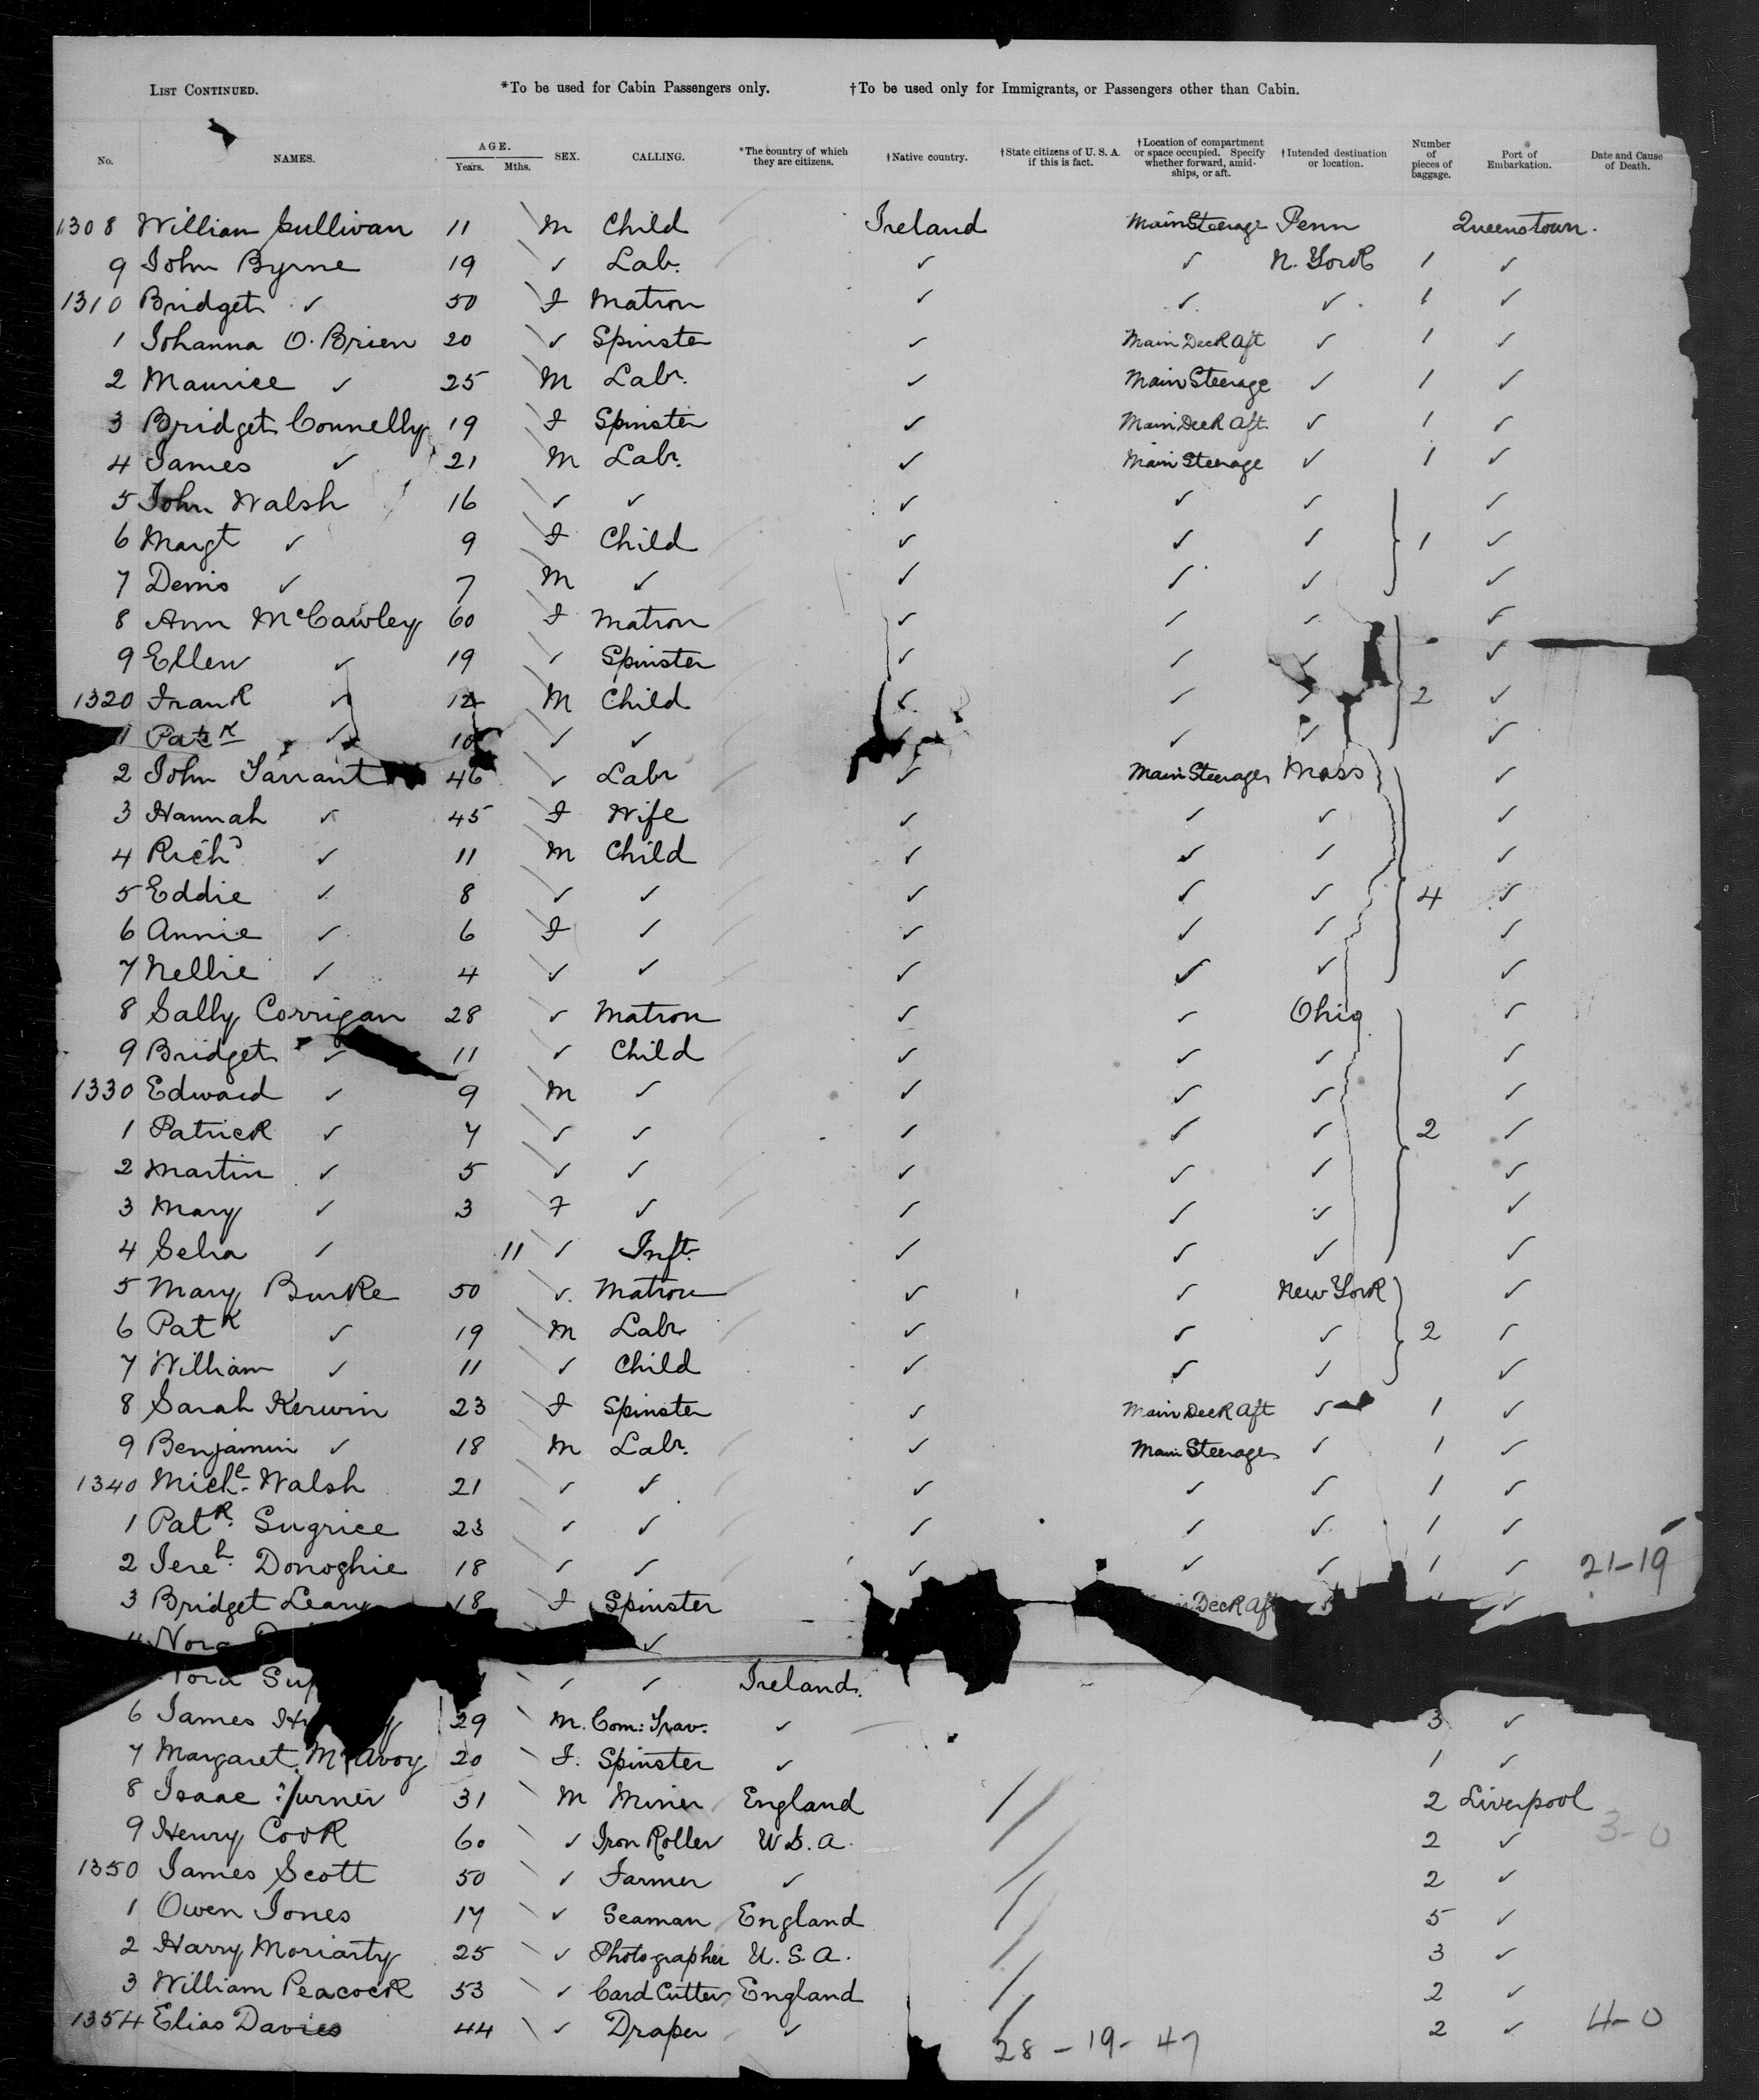 LIST CONTINUED. *To be used for Cabin Passengers only. †To be used only for Immigrants, or Passengers other than Cabin.
No. NAMES. AGE. Years. Mths. SEX. CALLING. *The country of which they are citizens. †Native country. †State citizens of U. S. A. if this is fact. †Location of compartment or space occupied. Specify whether forward, amidships, or aft. †Intended destination or location. Number of pieces of baggage. Port of Embarkation. Date and Cause of Death.
1308 William Sullivan 11 M Child Ireland Main Steerage Penn Queenstown.
9 John Byrne 19 ✓ Lab. ✓ ✓ N. York 1 ✓
1310 Bridget ✓ 50 F Matron ✓ ✓ ✓ 1 ✓
1 Johanna O.Brien 20 ✓ Spinster ✓ Main Deck Aft ✓ 1 ✓
2 Maurice ✓ 25 M Labr. ✓ Main Steerage ✓ 1 ✓
3 Bridget Connelly 19 F Spinster ✓ Main Deck Aft ✓ 1 ✓
4 James ✓ 21 M Labr. ✓ Main Steerage ✓ 1 ✓
5 John Walsh 16 ✓ ✓ ✓ ✓ ✓ ✓
6 Margt ✓ 9 F Child ✓ ✓ ✓ 1 ✓
7 Denis ✓ 7 M ✓ ✓ ✓ ✓ ✓
8 Ann McCawley 60 F Matron ✓ ✓ ✓ ✓
9 Ellen ✓ 19 ✓ Spinster ✓ ✓ ✓ ✓
1320 Frank ✓ 12 M Child ✓ ✓ ✓ 2 ✓
1 Patk ✓ 10 ✓ ✓ ✓ ✓ ✓ ✓
2 John Tarrant 46 ✓ Labr ✓ Main Steerage Mass ✓
3 Hannah ✓ 45 F Wife ✓ ✓ ✓ ✓
4 Richd ✓ 11 M Child ✓ ✓ ✓ ✓
5 Eddie ✓ 8 ✓ ✓ ✓ ✓ ✓ 4 ✓
6 Annie ✓ 6 F ✓ ✓ ✓ ✓ ✓
7 Nellie ✓ 4 ✓ ✓ ✓ ✓ ✓ ✓
8 Sally Corrigan 28 ✓ Matron ✓ ✓ Ohio ✓
9 Bridget ✓ 11 ✓ Child ✓ ✓ ✓ ✓
1330 Edward ✓ 9 M ✓ ✓ ✓ ✓ ✓
1 Patrick ✓ 7 ✓ ✓ ✓ ✓ ✓ 2 ✓
2 Martin ✓ 5 ✓ ✓ ✓ ✓ ✓ ✓
3 Mary ✓ 3 F ✓ ✓ ✓ ✓ ✓
4 Selia ✓ 11 ✓ Inft. ✓ ✓ ✓ ✓
5 Mary Burke 50 ✓ Matron ✓ ✓ New York ✓
6 Patk ✓ 19 M Labr ✓ ✓ ✓ 2 ✓
7 William ✓ 11 ✓ Child ✓ ✓ ✓ ✓
8 Sarah Kerwin 23 F Spinster ✓ Main Deck Aft ✓ 1 ✓
9 Benjamin ✓ 18 M Labr. ✓ Main Steerage ✓ 1 ✓
1340 Michl. Walsh 21 ✓ ✓ ✓ ✓ ✓ 1 ✓
1 Patk. Sugrice 23 ✓ ✓ ✓ ✓ ✓ 1 ✓
2 Jereh. Donoghie 18 ✓ ✓ ✓ ✓ ✓ 1 ✓ 21-19
3 Bridget Leary 18 F Spinster Deck Aft ✓
4 Nora ✓
Nora ✓ ✓ Ireland.
6 James 29 M. Com: Trav. ✓ 3 ✓
7 Margaret McAvoy 20 F. Spinster ✓ 1 ✓
8 Isaac Turner 31 M Miner England 2 Liverpool
9 Henry Cook 60 ✓ Iron Roller U.S.A. 2 ✓ 3-0
1350 James Scott 50 ✓ Farmer ✓ 2 ✓
1 Owen Jones 17 ✓ Seaman England 5 ✓
2 Harry Moriarty 25 ✓ Photographer U.S.A. 3 ✓
3 William Peacock 53 ✓ Card Cutter England 2 ✓
1354 Elias Davies 44 ✓ Draper ✓ 2 ✓ 4-0
28-19-47